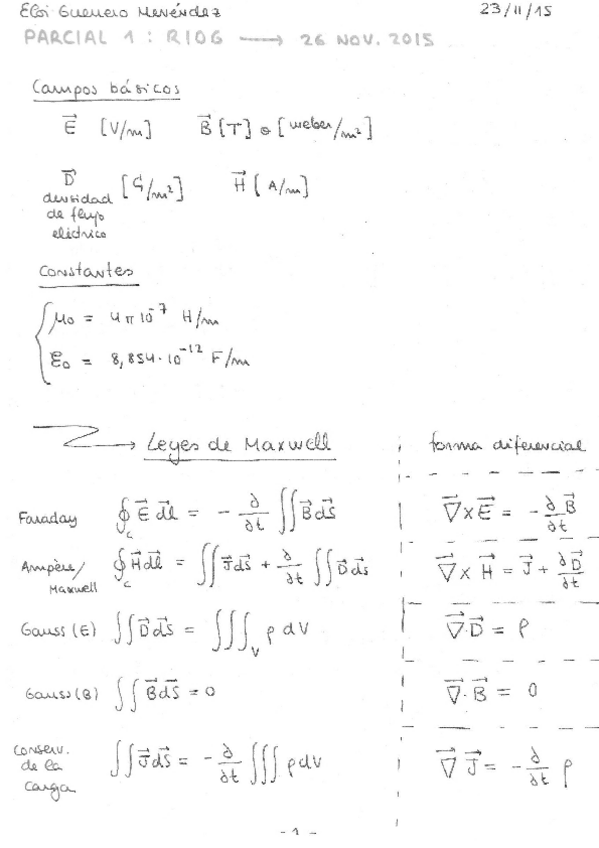 Eloi Guerrero Menéndez 23/11/15
PARCIAL 1 : RIOG → 26 NOV. 2015
Campos básicos
E⃗ [V/m] B⃗ [T] o [weber/m²]
D⃗ [C/m²] H⃗ [A/m]
densidad
de flujo
eléctrico
Constantes
μ₀ = 4π10⁻⁷ H/m
ε₀ = 8,854·10⁻¹² F/m
→ Leyes de Maxwell forma diferencial
Faraday ∮_c E⃗ dl⃗ = - ∂/∂t ∬ B⃗ dS⃗ ∇⃗ x E⃗ = - ∂B⃗/∂t
Ampère/Maxwell ∮_c H⃗ dl⃗ = ∬ J⃗ ds⃗ + ∂/∂t ∬ D⃗ ds ∇⃗ x H⃗ = J⃗ + ∂D⃗/∂t
Gauss (E) ∬ D⃗ dS⃗ = ∭_V ρ dV ∇⃗·D⃗ = ρ
Gauss (B) ∬ B⃗ dS⃗ = 0 ∇⃗·B⃗ = 0
Conserv.
de la
carga ∬ J⃗ ds⃗ = - ∂/∂t ∭ ρ dV ∇⃗ J⃗ = - ∂/∂t ρ
- 1 -